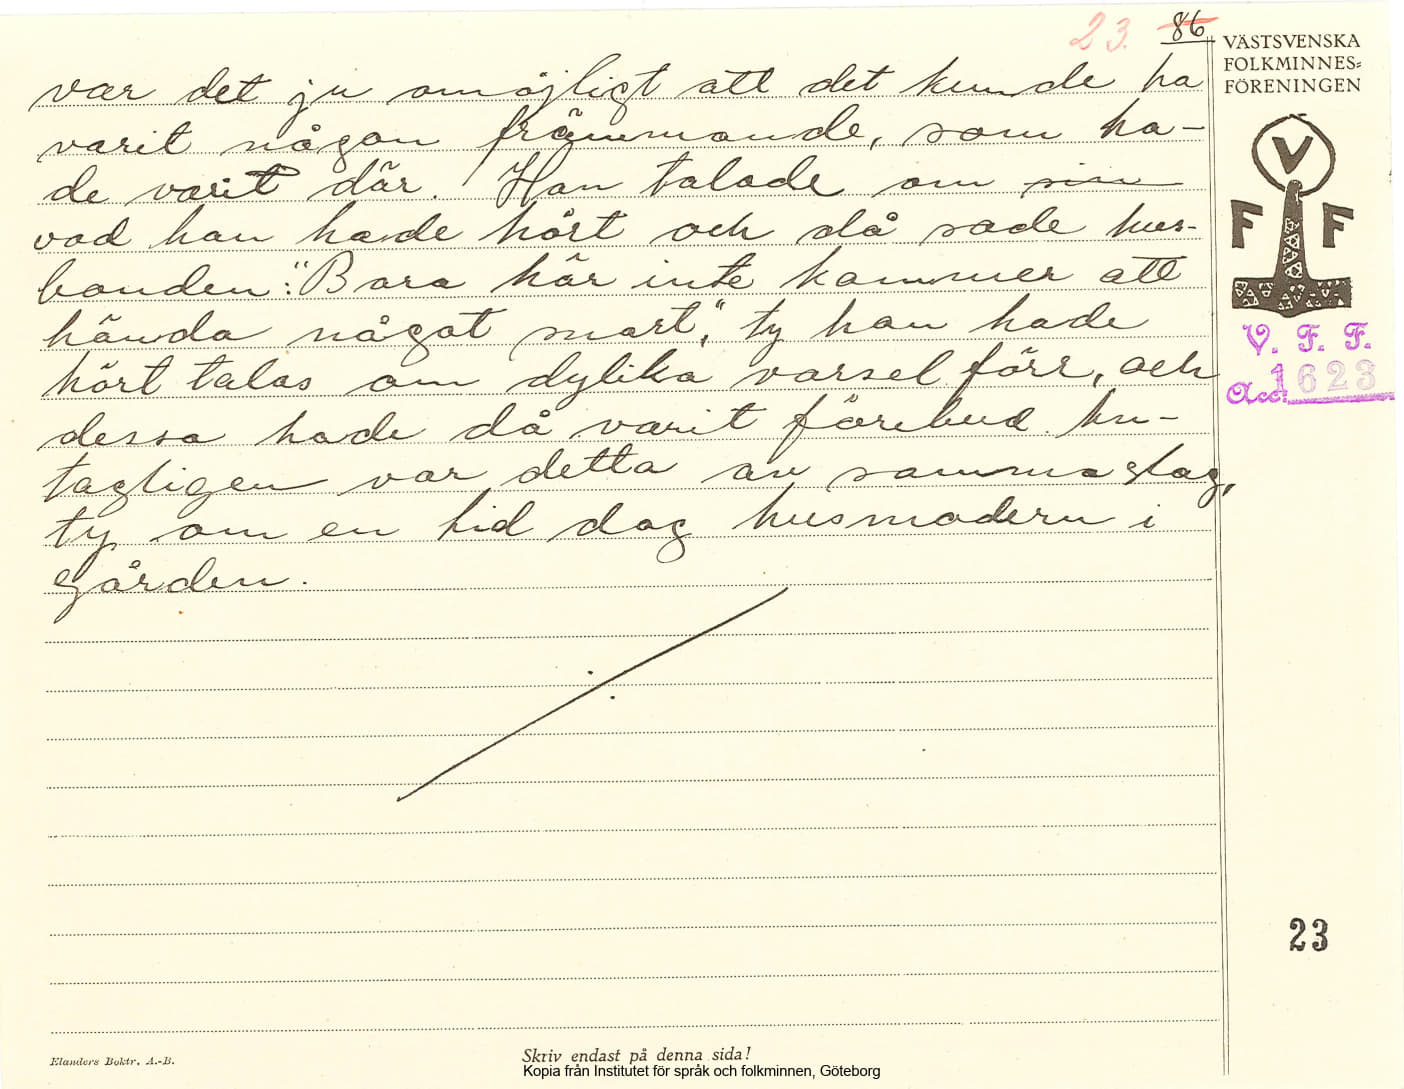 23. 86
VÄSTSVENSKA
FOLKMINNES=
FÖRENINGEN
V
F F
V. F. F.
Acc. 1623
var det ju omöjligt att det kunde ha
varit någon främmande, som ha-
de varit där. Han talade om sin
vad han hade hört och då sade hus-
bonden: "Bara här inte kommer att
hända något snart," ty han hade
hört talas om dylika varsel förr, och
dessa hade då varit förebud. An-
tagligen var detta av samma slag,
ty om en tid dog husmodern i
gården.
23
Elanders Boktr. A.-B.
Skriv endast på denna sida!
Kopia från Institutet för språk och folkminnen, Göteborg